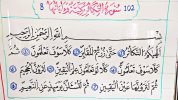 8 سورة التكاثر مكية وآياتها 102
بسم الله الرحمن الرحيم
ألهاكم التكاثر ① حتى زرتم المقابر ②
كلا سوف تعلمون ③ ثم كلا سوف تعلمون ④ كلا لو تعلمون علم اليقين ⑤ لترون الجحيم ⑥
ثم لترونها عين اليقين ⑦ ثم لتسألن يومئذ عن النعيم ⑧